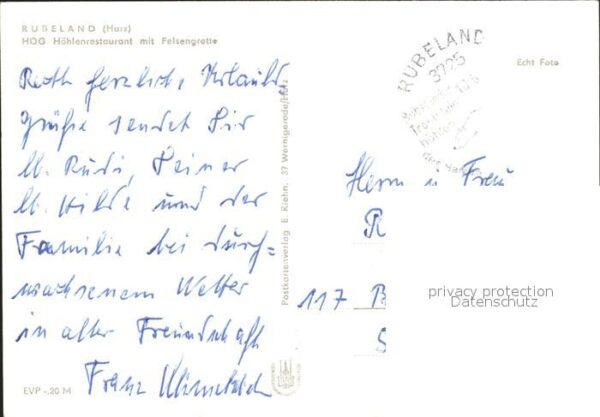 RUBELAND (Harz)
HOG Höhlenrestaurant mit Felsengrotte
Echt Foto
RUBELAND
3725
Recht herzliche Urlaubs
grüße sendet Dir
lb. Rudi, Deiner
lb. Hilde und der
Familie bei durch=
wachsenem Wetter
in alter Freundschaft
Franz
Herrn u Frau
R
117 B
S
privacy protection
Datenschutz
Postkartenverlag E. Riehn, 37 Wernigerode/Harz
EVP -.20 M